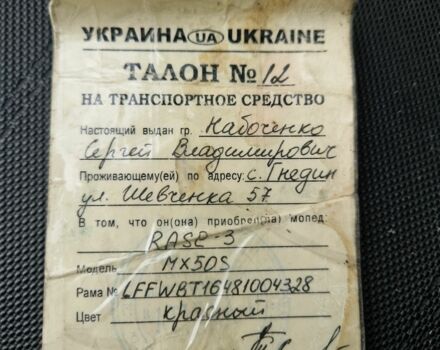 УКРАИНА UA UKRAINE
ТАЛОН № 12
НА ТРАНСПОРТНОЕ СРЕДСТВО
Настоящий выдан гр. Кабоченко
Сергей Владимирович
Проживающему(ей) по адресу: с. Гнедин
ул. Шевченка 57
В том, что он(она) приобрел(ла) мопед:
RASE-3
Модель MX50S
Рама № LFFWBT16481004328
Цвет красный